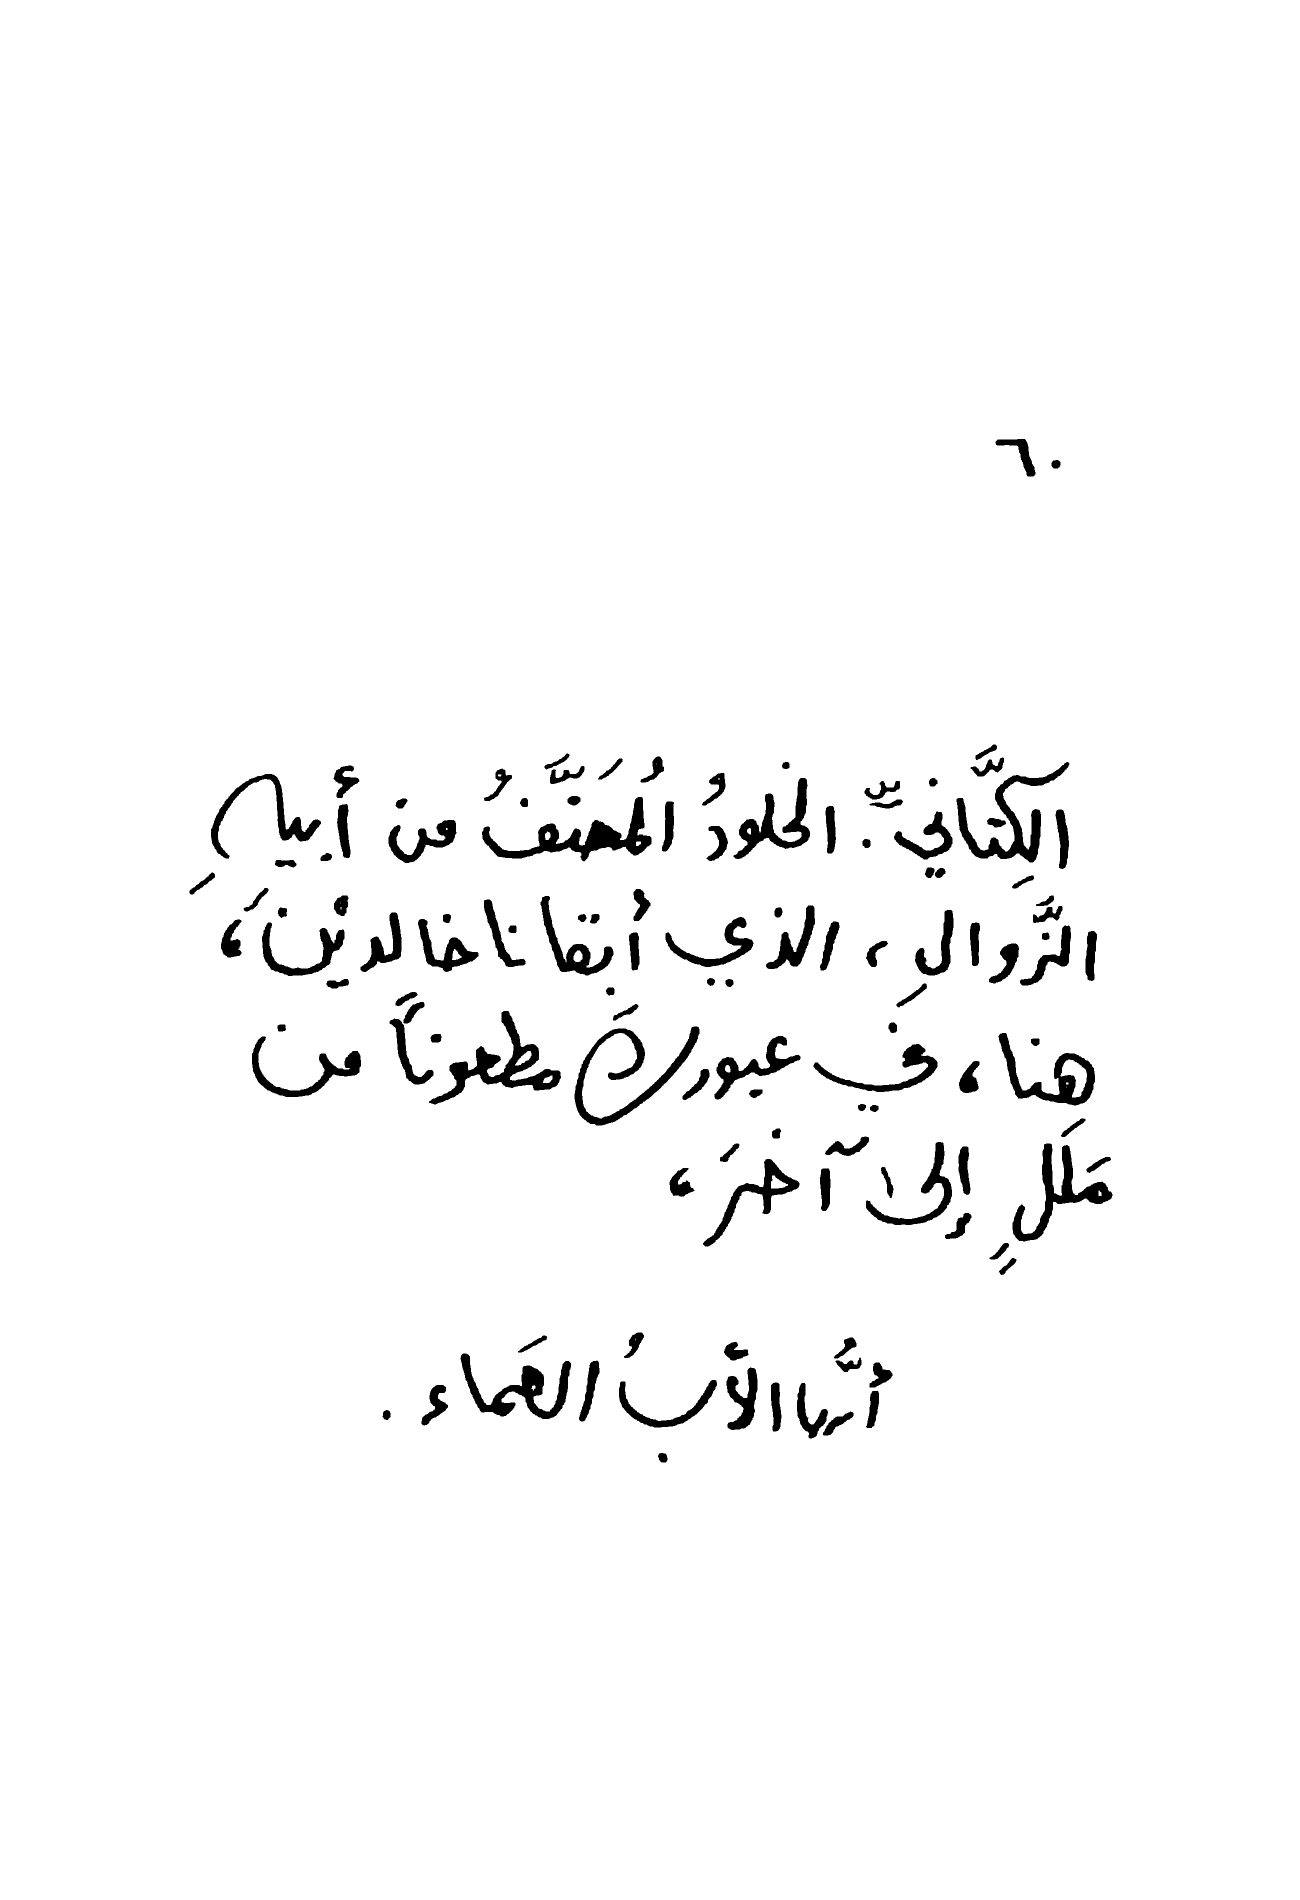 ٦٠
الكِتَّانيّ. الخلودُ المُعَنَّفُ من أبيهِ
الزَّوالِ، الذي أبقانا خالديْنَ،
هنا، في عبوركَ مطعوناً من
مَلَلٍ إلى آخرَ،
أيُّها الأبُ العَماء.